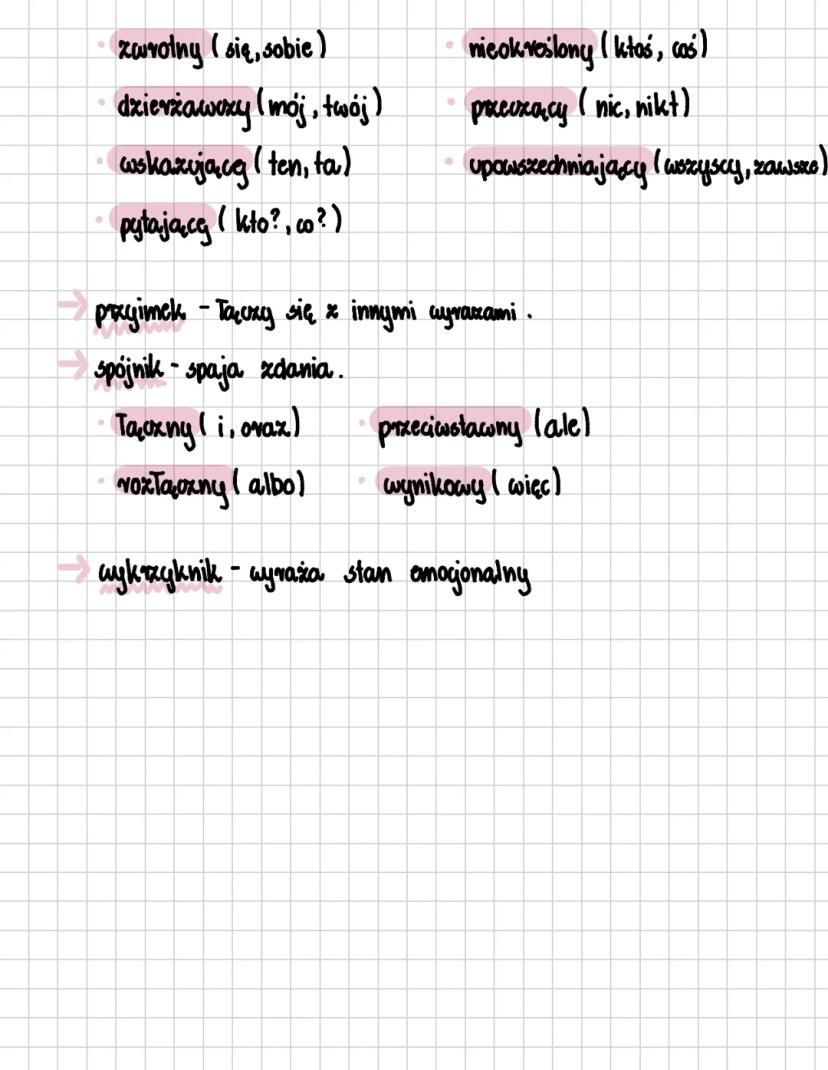 • zwrotny (się, sobie)
• nieokreślony (ktoś, coś)
• dzierżawczy (mój, twój)
• przeczący (nic, nikt)
• wskazujący (ten, ta)
• upowszechniający (wszyscy, zawsze)
• pytający (kto?, co?)
→ przyimek - łączy się z innymi wyrazami.
→ spójnik - spaja zdania.
• łączny (i, oraz)
• przeciwstawny (ale)
• rozłączny (albo)
• wynikowy (więc)
→ wykrzyknik - wyraża stan emocjonalny